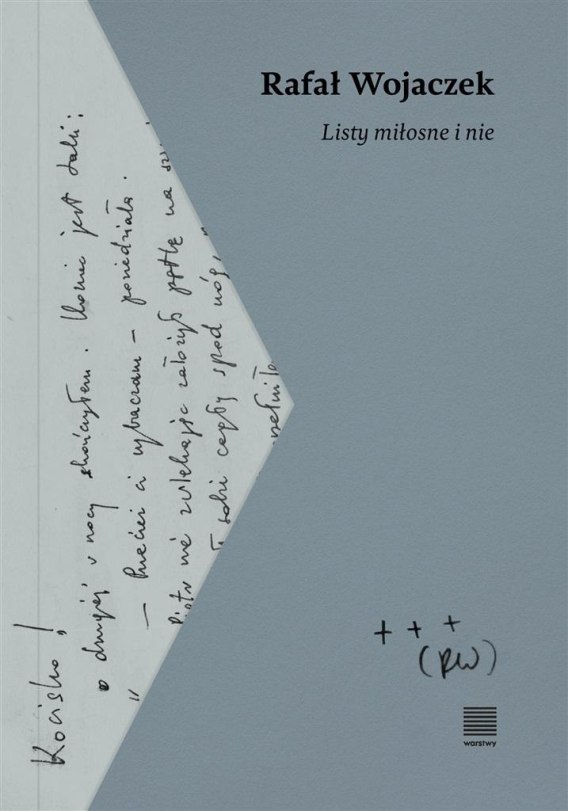 Rafał Wojaczek
Listy miłosne i nie
Kocisko!
o drugiej w nocy skończyłem. Koniec jest taki:
„— Przecież ci wybaczam – powiedziała.
Piotr nie zwlekając założył pętlę na
sobie cegły spod nóg,
+ + +
(RW)
warstwy